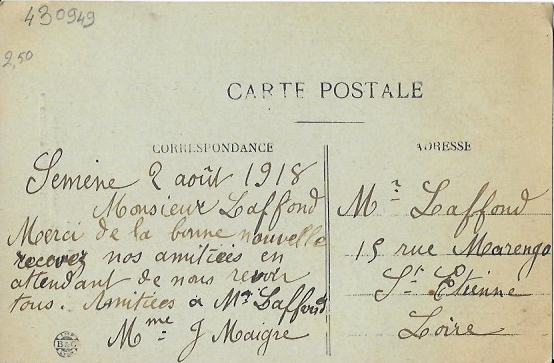 430949
2,50
CARTE POSTALE
CORRESPONDANCE
ADRESSE
Semène 2 août 1918
Monsieur Laffond
Merci de la bonne nouvelle
recevez nos amitiées en
attendant de nous revoir
tous. Amitiées à Mr Laffond
Mme J Maigre
B&G
Mr Laffond
15 rue Marengo
St Etienne
Loire